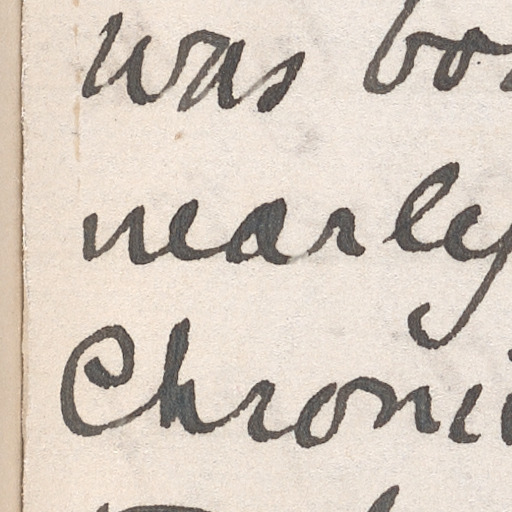 was bo
nearly
Chroni